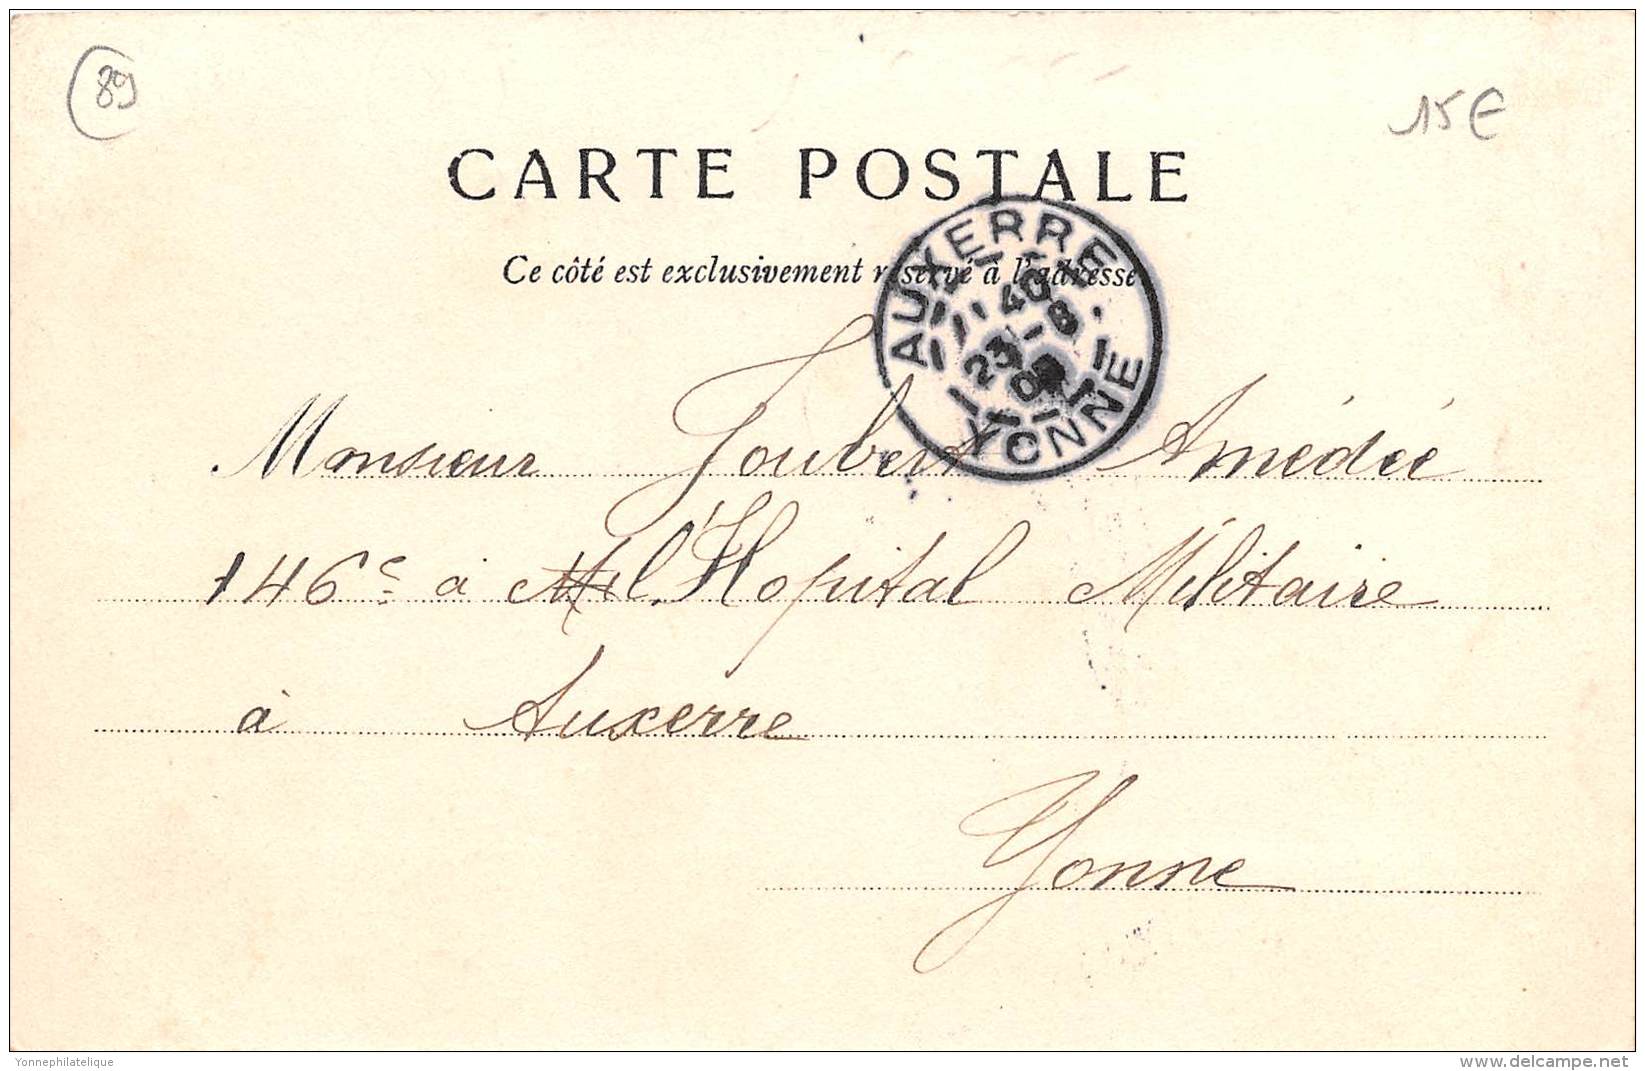 89
15€
CARTE POSTALE
Ce côté est exclusivement réservé à l'adresse
AUXERRE
40
23 - 8
YONNE
Monsieur Joubert Amédée
146e à l'Hopital Militaire
à Auxerre
Yonne
Yonnephilatelique
delcampe.net